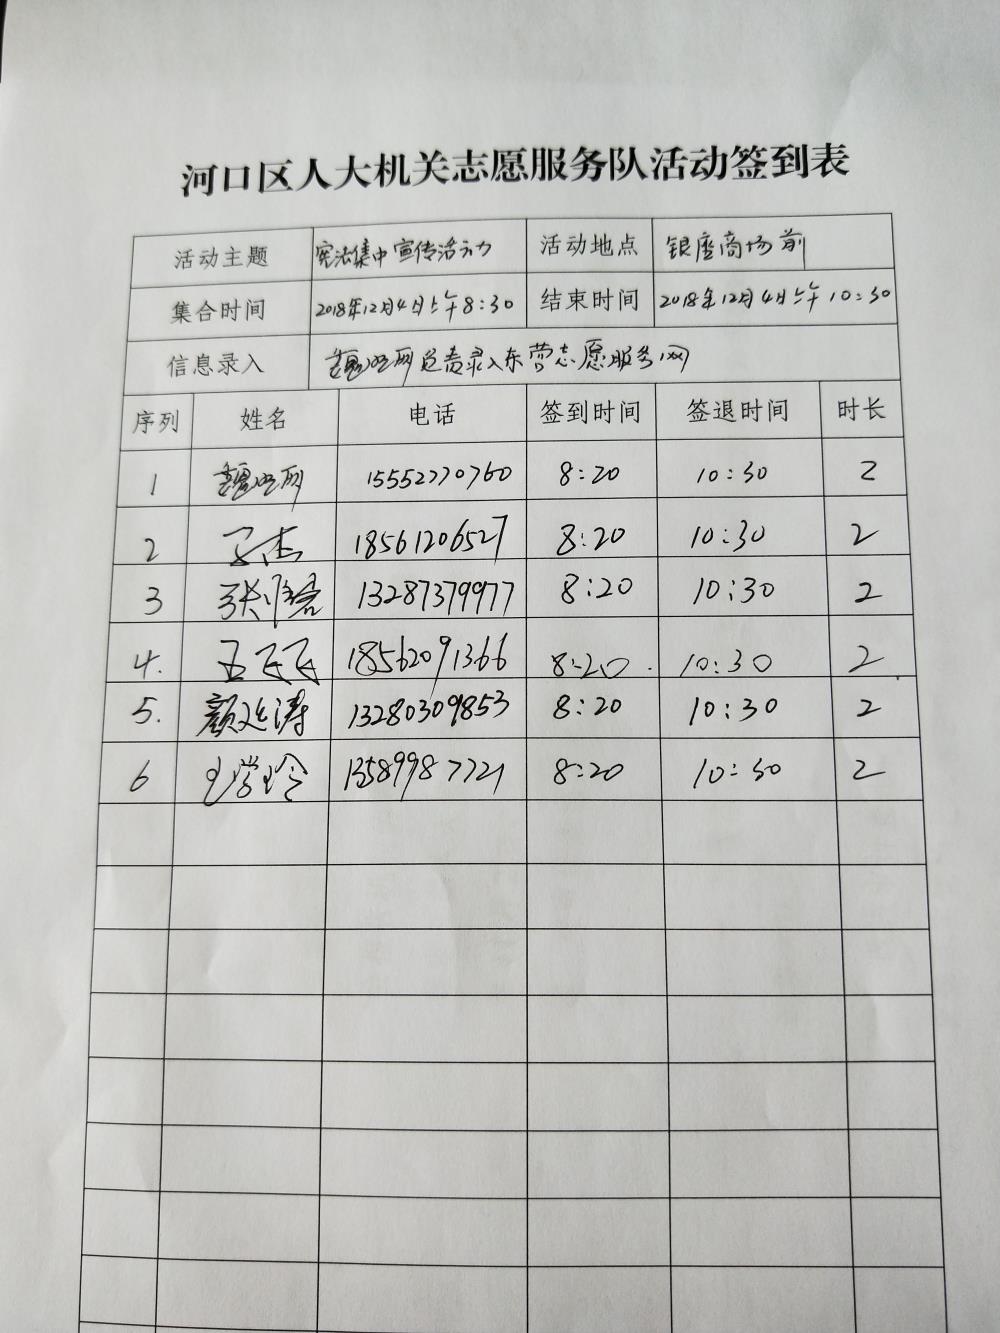 河口区人大机关志愿服务队活动签到表
活动主题 宪法集中宣传活动 活动地点 银座商场前
集合时间 2018年12月4日上午8:30 结束时间 2018年12月4日上午10:30
信息录入 魏 负责录入东营志愿服务网
序列 姓名 电话 签到时间 签退时间 时长
1 魏 15552270760 8:20 10:30 2
2 杰 18561206527 8:20 10:30 2
3 张 13287379977 8:20 10:30 2
4. 王飞飞 18562091366 8:20. 10:30 2
5. 颜廷涛 13280309853 8:20 10:30 2
6 王学玲 13589987721 8:20 10:30 2